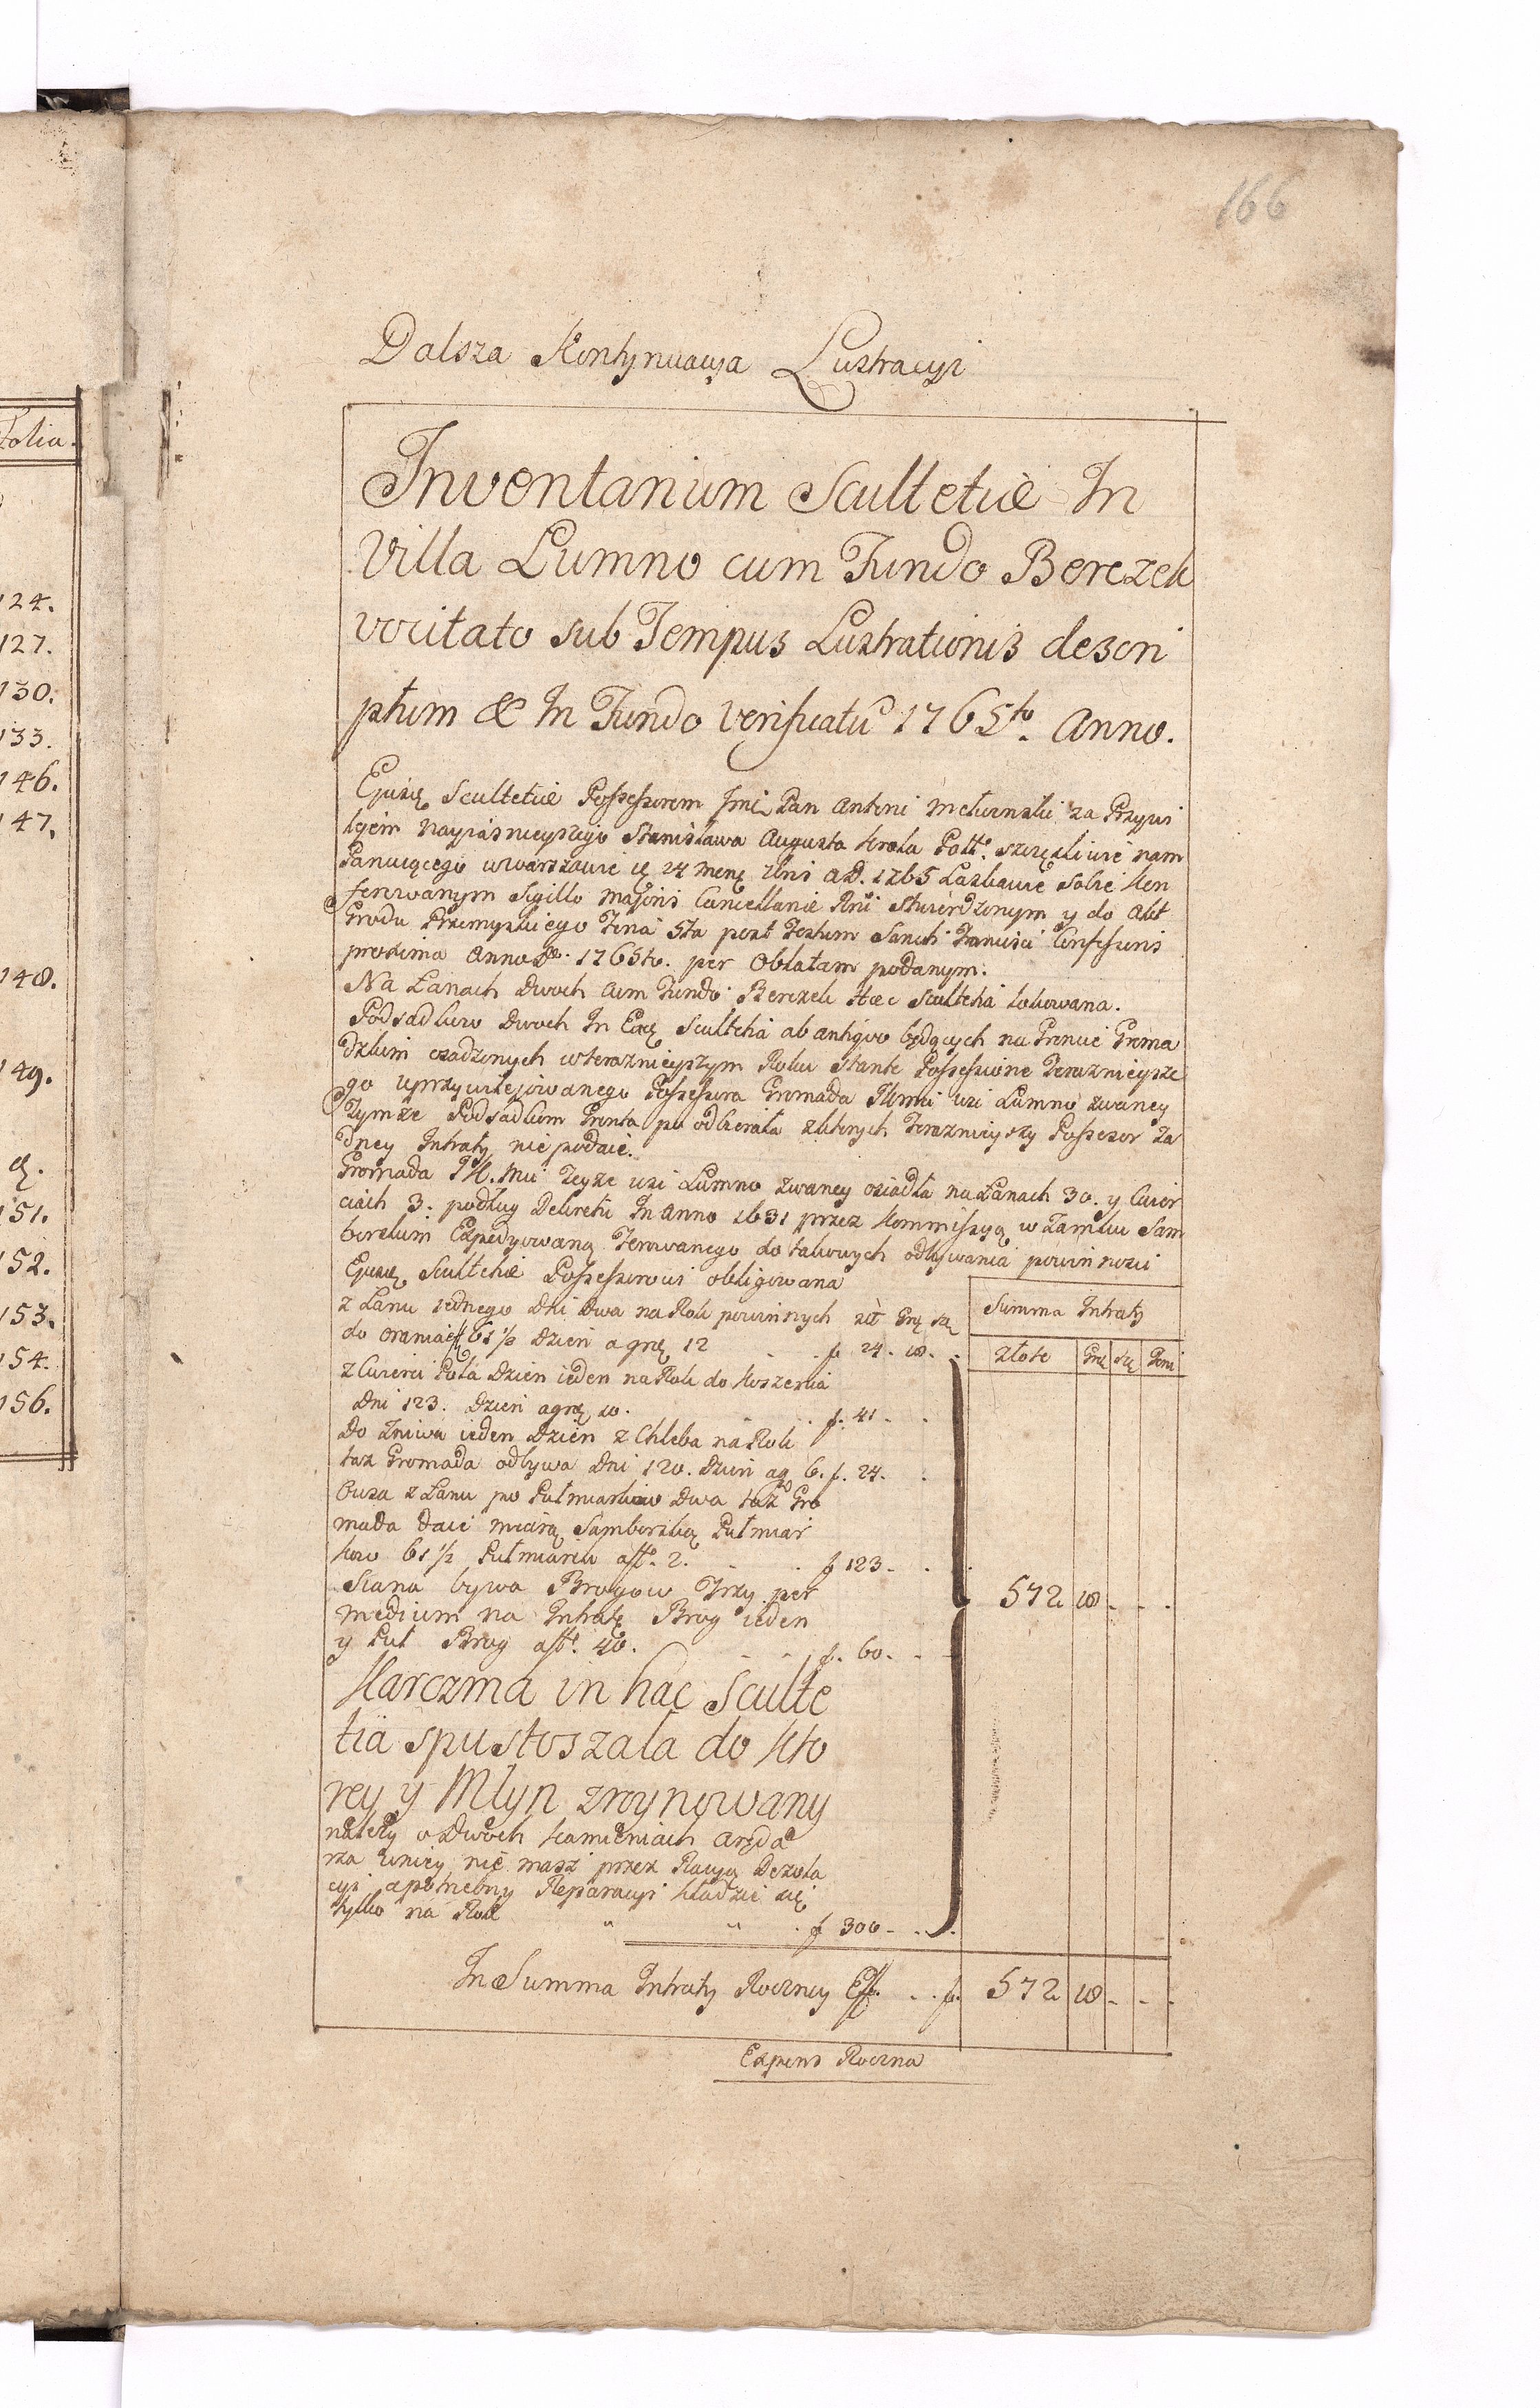 166
Dalsza Kontynuacya Lustracyi
Folia.
124.
127.
130.
133.
146.
147.
148.
149.
151.
152.
153.
154.
156.
Inventarium Scultetiæ In
Villa Łumno cum Fundo Berezek
vocitato sub Tempus Lustrationis descri
ptum & In Fundo Verificatū 1765to. Anno.
Scultetiæ Possessorem Jmć Pan Antoni za Przywi
lejem Nayiasnieyszego Stanisława Augusta Krola Pol. szczęsliwie nam
Panuiącego w Warszawie 24 A.D. 1765 Łaskawie sobie kon
ferowanym Sigillo Majoris Cancellariæ Rni Stwierdzonym y do Akt
Grodu Przemyskiego 5ta post Festum Sancti Francisci Confessoris
proxima Anno D. 1765to. per Oblatam podanym.
Na Łanach Dwoch cum Fundo Berezek Hæc Scultetia lokowana.
Podsadkow Dwoch In Scultetia ab antiquo będących na Gruncie Groma
dzkim osadzonych w teraznieyszym Roku stante Possessione Teraznieysze
go uprzywilejowanego Possessora Gromada wsi Łumno zwaney
Tymże Podsadkom Grunta poodbierała z ktorych Teraznieyszy Possesor ża
dney Intraty nie podaie.
Gromada Teyże wsi Łumno zwaney osiadła na Łanach 30. y Cwier
ciach 3. podług Dekretu In Anno 1631 przez Kommissyą w Zamku Sam
borskim Expedyowaną Ferowanego do takowych odbywania powinnosci
Scultetiæ Possessorowi obligowana
z Łanu iednego Dni Dwa na Rok powinnych zł Grę szę
do orania 61 1/2 Dzien a grę 12 . . f. 24. 18. .
z Cwierci Pola Dzien ieden na Rok do koszenia
Dni 123. Dzien a grę 10. . . f. 41. .
Do żniwa ieden Dzien z Chleba na Rok
taż Gromada odbywa Dni 120. Dzien ag 6. f. 24. .
Owsa z Łanu po Pułmiarkow Dwa taż Gro
mada daie miarą Samborską Pułmiar
kow 61 1/2 Pułmiarek a fl. 2. . . f 123. .
Siana bywa Brogow Trzy per
medium na Intratę Brog ieden
y Puł Brog a fl. 40. . . f. 60. .
Karczma in hac Sculte
tia spustoszała do kto
rey y Młyn zroynowany
należy o Dwoch kamieniach Aręda
rza w niey nie masz przez Racyą Dezola
cyi a potrzebny Reparacyi kładzie się
tylko na Rok " " . f 300. .
Summa Intraty
Złote Grę szę Deni
572 18 . . .
In Summa Intraty Roczney . . f. 572 18 . . .
Expens Roczna